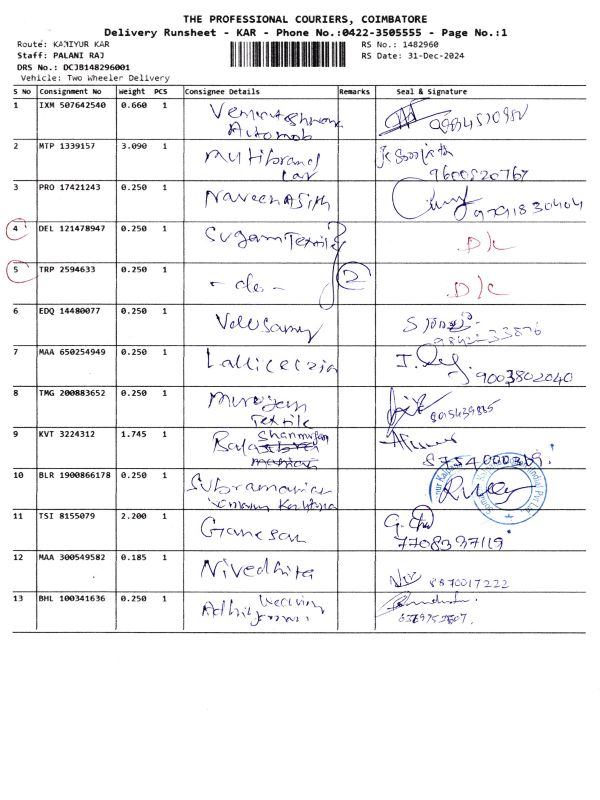 THE PROFESSIONAL COURIERS, COIMBATORE
Delivery Runsheet - KAR - Phone No.:0422-3505555 - Page No.:1
Route: KARIYUR KAR
RS No.: 1482960
Staff: PALANI RAJ
RS Date: 31-Dec-2024
DRS No.: DCJB148296001
Vehicle: Two Wheeler Delivery
S No Consignment No Weight PCS Consignee Details Remarks Seal & Signature
1 IXM 507642540 0.660 1
2 MTP 1339157 3.090 1 multibrand car
9600520767
3 PRO 17421243 0.250 1 Naveen Asith
9791830404
4 DEL 121478947 0.250 1 Sugam Textile D/C
5 TRP 2594633 0.250 1 - do - 2 D/C
6 EDQ 14480077 0.250 1 Velusamy
7 MAA 650254949 0.250 1
9003802040
8 TMG 200883652 0.250 1 murugan
Textile
9 KVT 3224312 1.745 1 Shanmugam
10 BLR 1900866178 0.250 1 Subramanian
11 TSI 8155079 2.200 1 Ganesan
7708397119
12 MAA 300549582 0.185 1 Nivedhita
8870017222
13 BHL 100341636 0.250 1